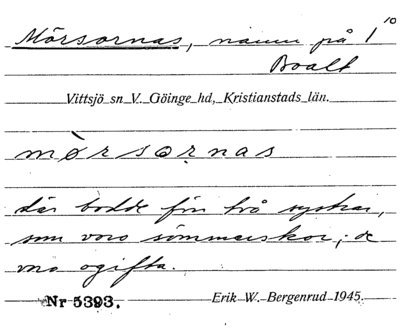 Mörsornas, namn på 1
10
Boalt
Vittsjö sn V. Göinge hd, Kristianstads län.
mòrsọrnas
där bodde förr två systrar,
som voro sömmerskor; de
voro ogifta.
Nr 5393.
Erik W. Bergenrud 1945.